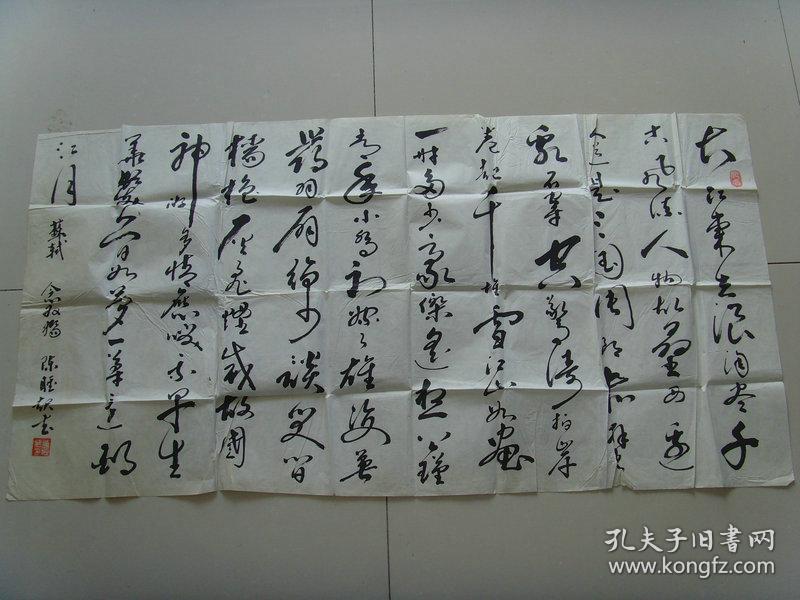 大江东去浪淘尽千
古风流人物故垒西边
人道是三国周郎赤壁
乱石穿空惊涛拍岸
卷起千堆雪江山如画
一时多少豪傑遥想公瑾
当年小乔初嫁了雄姿英
發羽扇綸巾談笑间
檣櫓灰飞煙滅故國
神游多情應笑我早生
華髮人间如夢一尊还酹
江月
蘇軾 念奴嬌 陈
孔夫子旧书网
www.kongfz.com